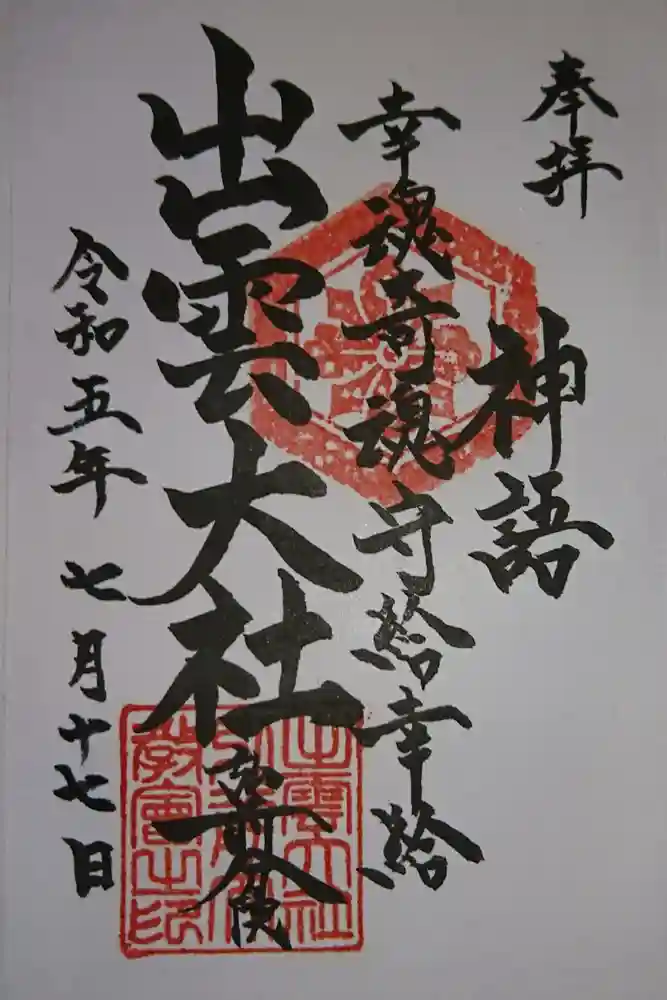 奉拝
神語
幸魂奇魂守給幸給
出雲大社
前分院
令和五年 七月十七日
出雲大社
教會之印